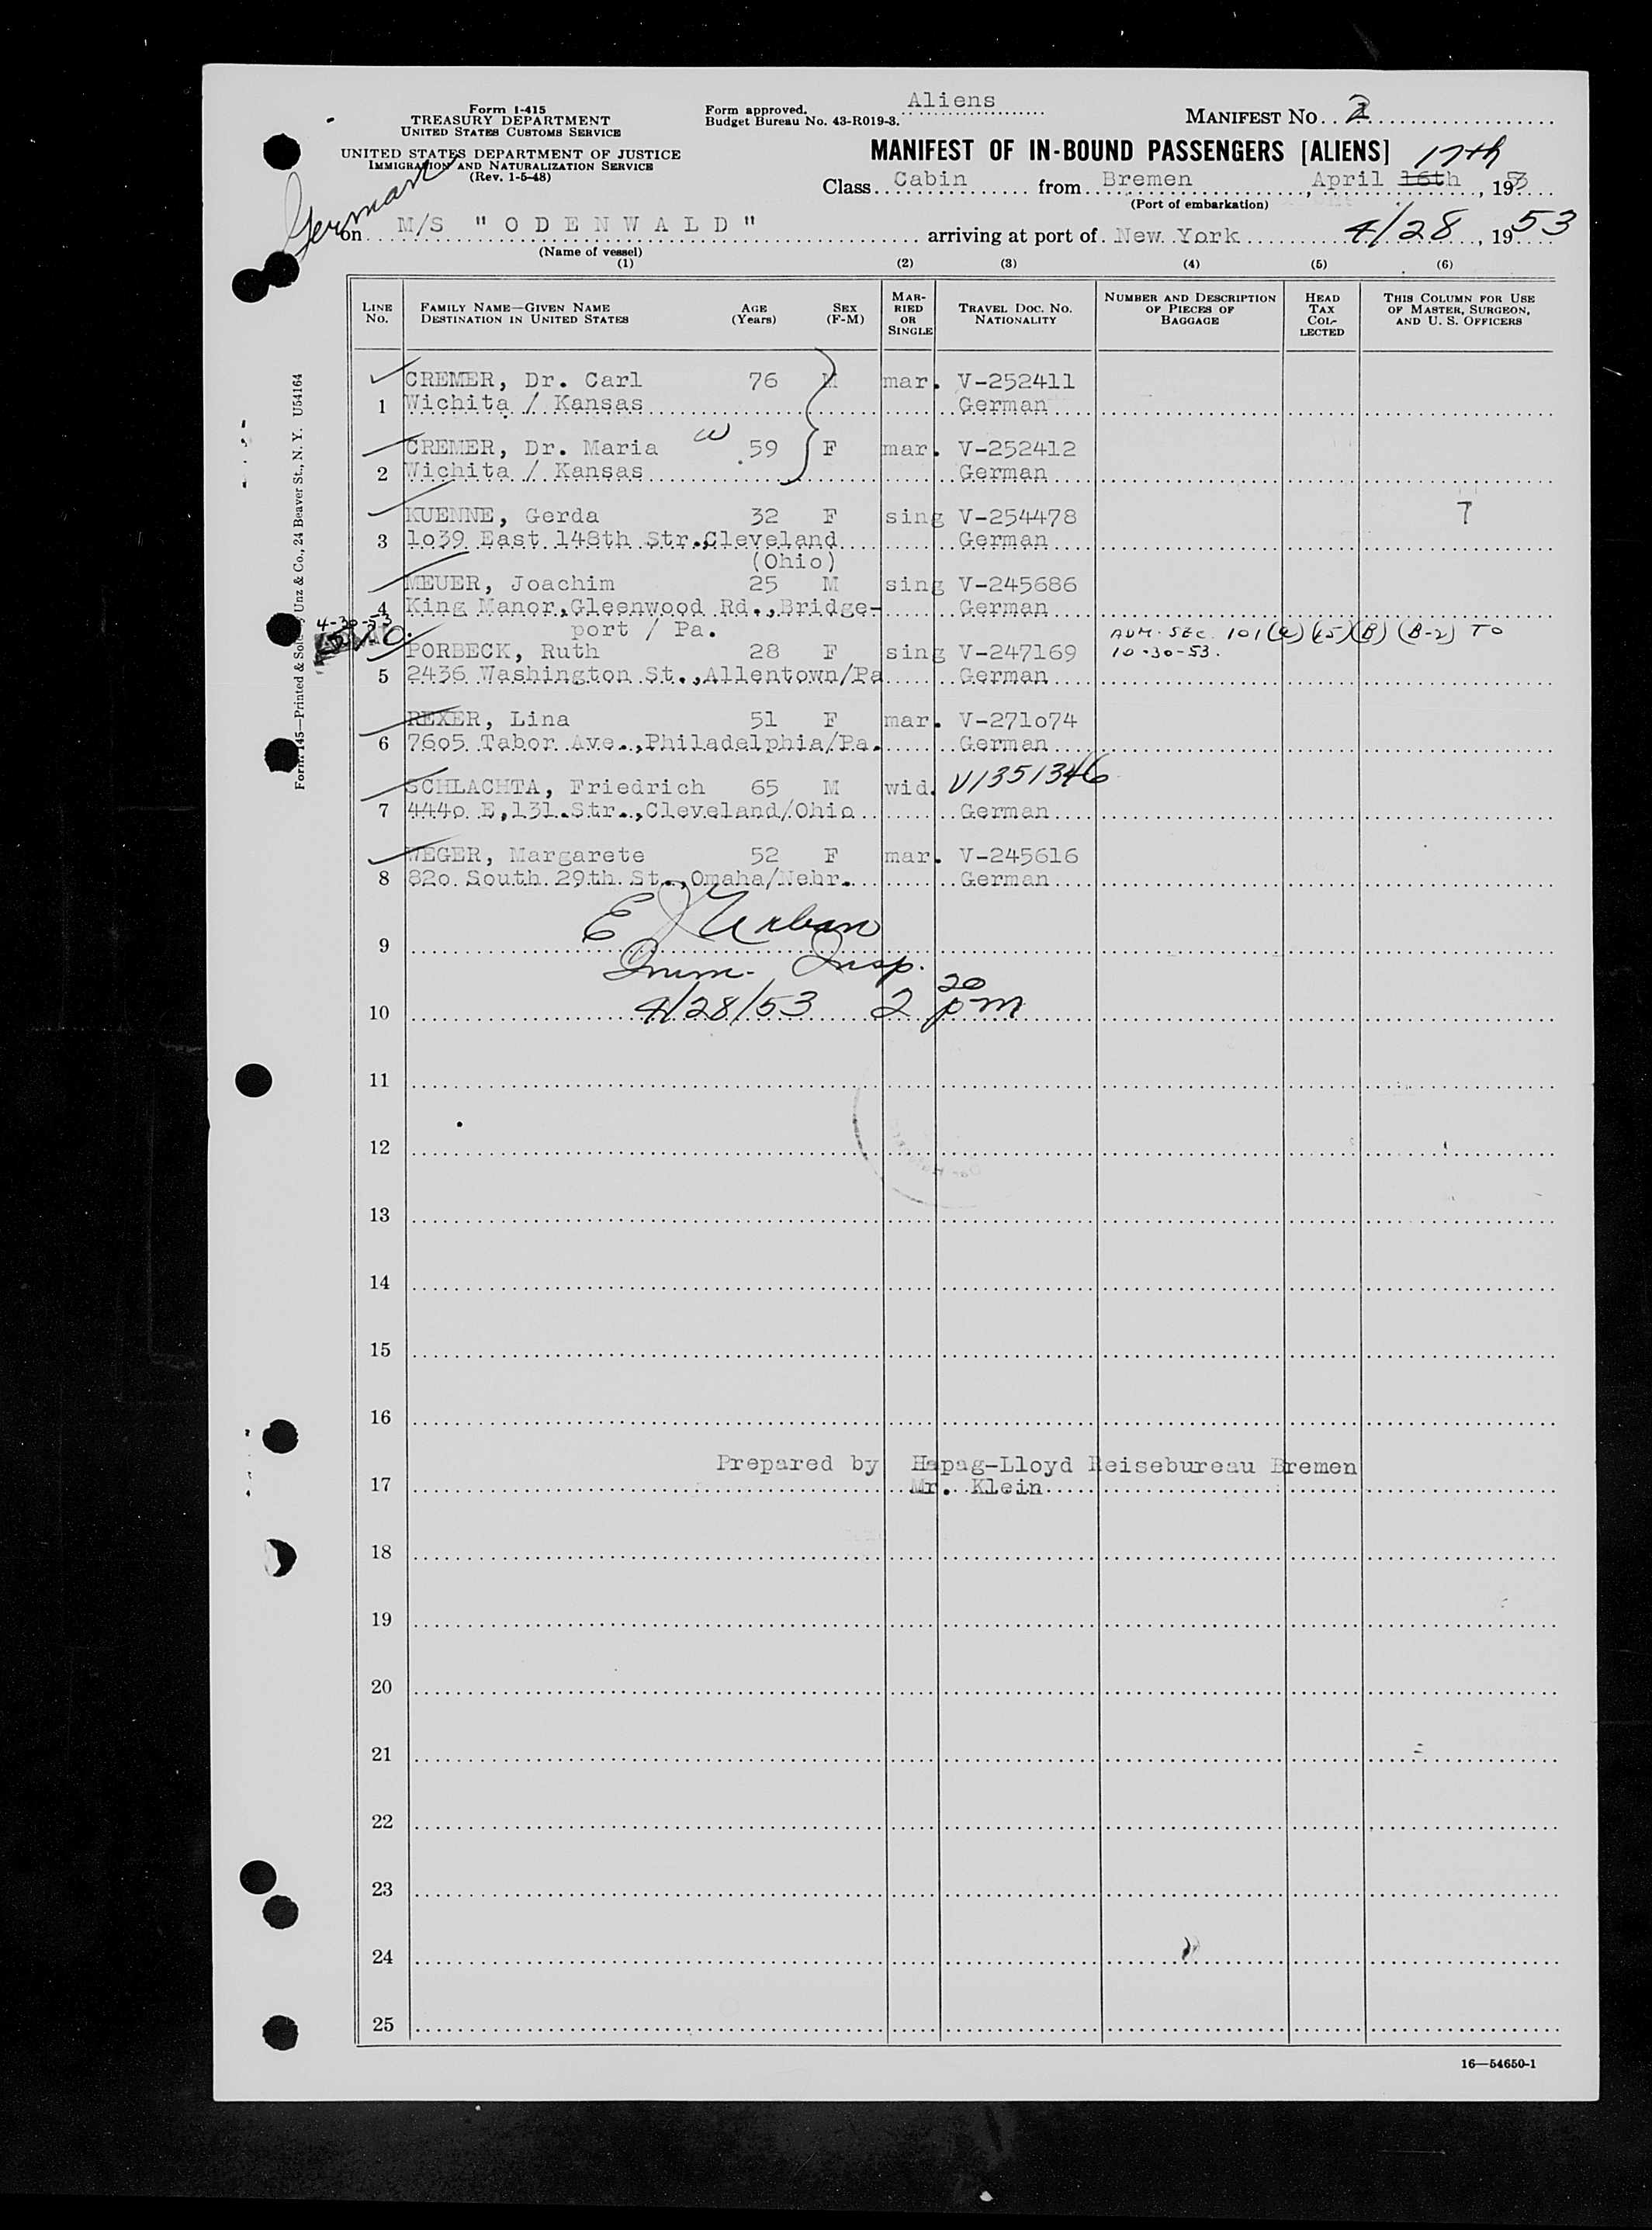 Form I-415
TREASURY DEPARTMENT
UNITED STATES CUSTOMS SERVICE
UNITED STATES DEPARTMENT OF JUSTICE
IMMIGRATION AND NATURALIZATION SERVICE
(Rev. 1-5-48)
Form approved.
Budget Bureau No. 43-R019-3.
Aliens
MANIFEST NO. 2
MANIFEST OF IN-BOUND PASSENGERS [ALIENS]
17th
Class Cabin from Bremen, April 16th, 1953
(Port of embarkation)
German
on M/S "ODENWALD" arriving at port of New York 4/28, 1953
(Name of vessel)
(1) (2) (3) (4) (5) (6)
LINE NO. FAMILY NAME—GIVEN NAME DESTINATION IN UNITED STATES AGE (Years) SEX (F-M) MARRIED OR SINGLE TRAVEL DOC. NO. NATIONALITY NUMBER AND DESCRIPTION OF PIECES OF BAGGAGE HEAD TAX COLLECTED THIS COLUMN FOR USE OF MASTER, SURGEON, AND U. S. OFFICERS
CREMER, Dr. Carl 76 M mar. V-252411
1 Wichita / Kansas German
CREMER, Dr. Maria W 59 F mar. V-252412
2 Wichita / Kansas German
KUENNE, Gerda 32 F sing V-254478 T
3 1o39 East 148th Str.,Cleveland German
(Ohio)
MEUER, Joachim 25 M sing V-245686
4 King Manor,Gleenwood Rd.,Bridge- German
4-30-53
port / Pa. ADM. SEC. 101(a)(15)(B) (B-2) TO
PORBECK, Ruth 28 F sing V-247169 10-30-53.
5 2436 Washington St.,Allentown/Pa German
REXER, Lina 51 F mar. V-271o74
6 76o5 Tabor Ave.,Philadelphia/Pa. German
SCHLACHTA, Friedrich 65 M wid. V1351346
7 444o E,131.Str.,Cleveland/Ohio German
WEGER, Margarete 52 F mar. V-245616
8 82o South 29th St.,Omaha/Nebr. German
E J Urban
9
Imm. Insp.
10 4/28/53 2 20 pm
11
12
13
14
15
16
Prepared by Hapag-Lloyd Reisebureau Bremen
17 Mr. Klein
18
19
20
21
22
23
24
25
16—54650-1
Unz & Co., 24 Beaver St., N. Y. U54164